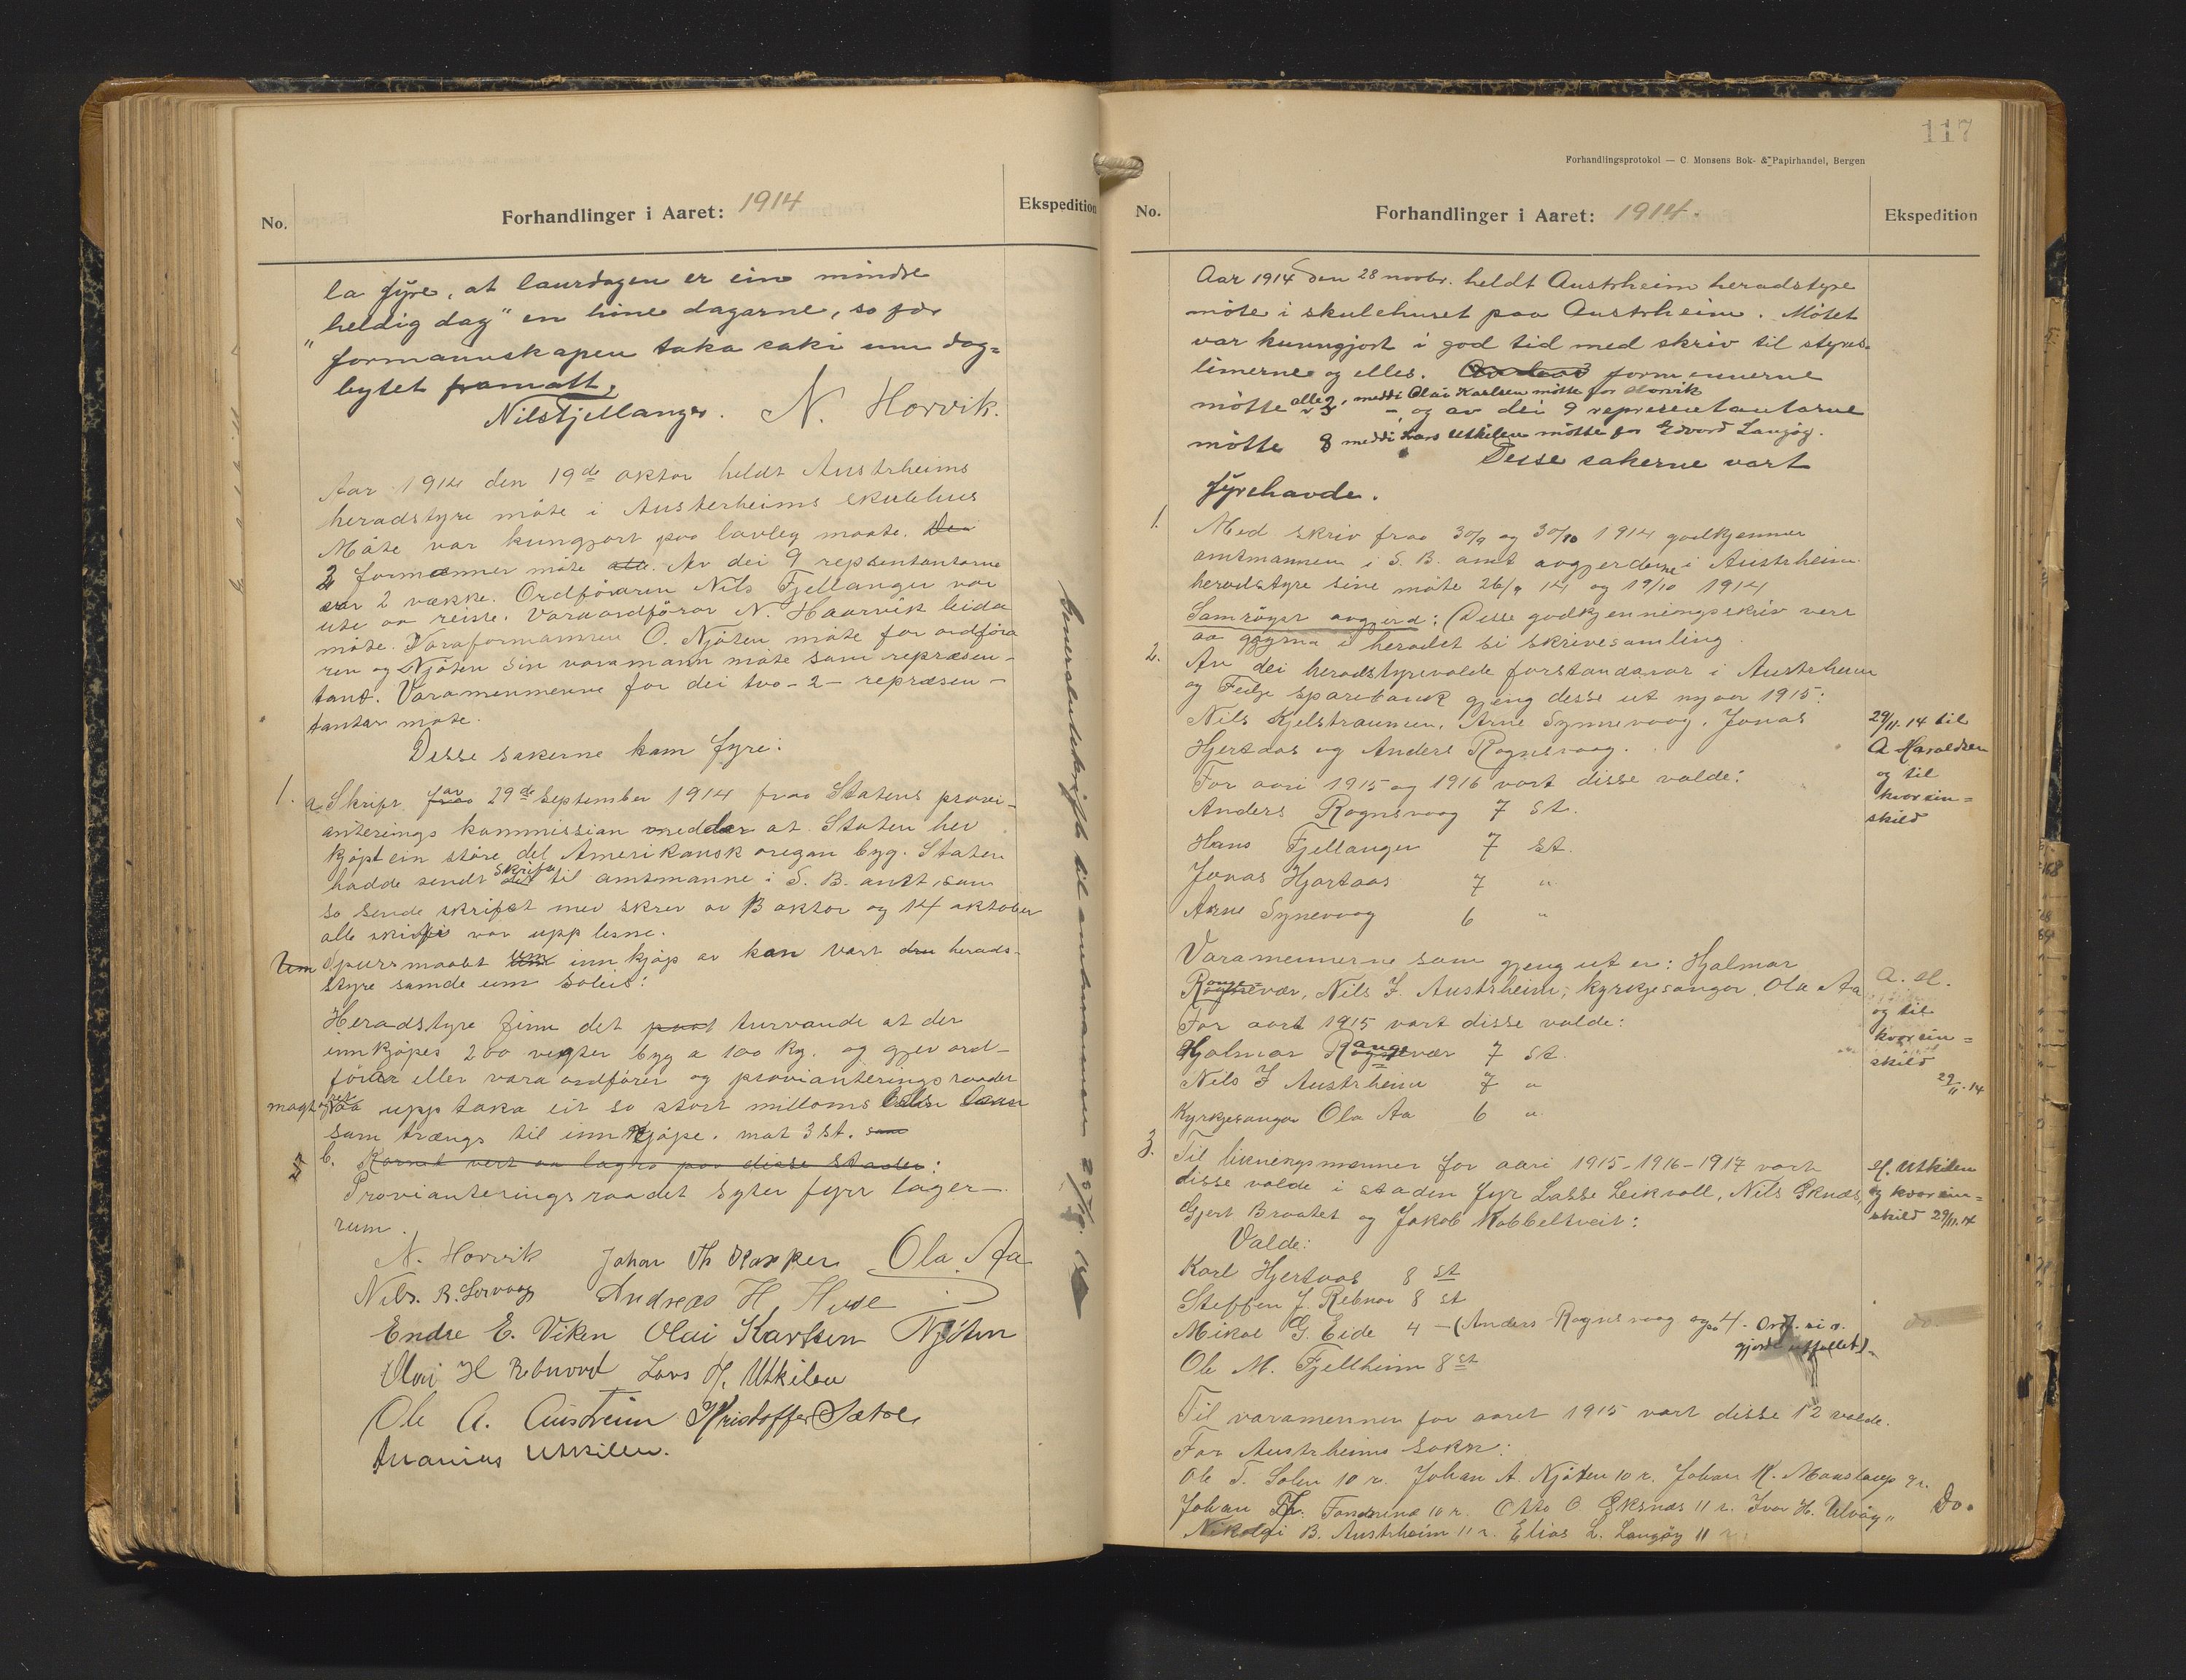 No.
Forhandlinger i Aaret: 1914
Ekspedition
la fyre, at laurdagen er ein mindre
heldig dag" en hine dagarne, so før
"formannskapen taka saki um dag=
bytet framatt.
Nils Fjellanger. N. Horvik.
Aar 1914 den 19de oktor heldt Austrheims
heradstyre møte i Austerheims skulehus
Møte var kungjort paa lavleg maate. Dei
3 formænner møte alle. Av dei 9 repsentantarne
var 2 vække. Ordføraren Nils Fjellanger var
ute aa reiste. Varaordførar N. Haarvik leida
møte. Varaformannen O. Njøten møte for ordføra
ren og Njøten sin varamann møte som repræsen-
tant. Varamennerne for dei tvo-2-repræsen-
tantar møte.
Disse sakerne kom fyre:
1. a. Skriv fraa av 29de September 1914 fraa Statens provi-
anterings kommission medder at Staten hev
kjøpt ein større del Amerikansk bygg. Staten
hadde sendt skrifta til amtmanne i S. B. amt, som
so sende skrifet med skrev av 13 oktor og 14 oktober
alle skrifti var upp lesne.
Um Spursmaalet um innkjøp av kan vart herads-
styre samde um soleis:
Heradstyre finn det turvande at der
innkjøpes 200 vegter byg a 100 kg. og gjev ord-
førar eller vara ordfører og provianterings raadet
magt og ret upp taka eit so stort milloms laan
som trængs til inn kjøpe. mot 3 st.
b. Kornet vert aa lagra paa disse stader:
Provianterings raadet syter fyrr lager-
rum.
N. Horvik Johan Th Kaspers Ola Aa
Nils. R. Servaag Andreas H. Hide
Endre E. Viken Olai Karlsen Njøten
Olai H Rebnord Lars H. Utkilen
Ole A. Austreim Kristoffer Sætre
Ananias Utkilen.
Generalutskrift til amtmannen 20/10. 14
117
Forhandlingsprotokol — C. Monsens Bok- & Papirhandel, Bergen
No.
Forhandlinger i Aaret: 1914.
Ekspedition
Aar 1914 den 28 novbr. heldt Austrheim heradstyre
møte i skulehuset paa Austrheim. Møtet
var kunngjort i god tid med skriv til styres-
limerne og elles. formennerne
møtte alle 3, meddi Olai Karlsen møtte for Horvik
og av dei 9 representantarne
møtte 8 meddi Lars Utkilen møtte for Edvard Langøy.
Desse sakerne vart
fyrehavde.
1. Med skriv fraa 30/9 og 30/10 1914 godkjenner
amtmannen i S. B. amt avgjerderne i Austrheim
heradstyre sine møte 26/9 14 og 19/10 1914
Samrøyst avgjerd: Disse godkjenningsskriv vert
aa gøyma i heradet si skrivesamling.
2. Av dei heradstyrevalde forstandarar i Austrheim
og Fedje sparebank gjeng desse ut nyaar 1915:
Nils Kjelstraumen, Arne Synnevaag, Jonas
Hjertaas og Anders Rognsvaag.
29/11. 14 til
A Haraldsen
og til
kvar ein=
skild
For aari 1915 og 1916 vart disse valde:
Anders Rognsvaag 7 st.
Hans Fjellanger 7 st.
Jonas Hjartaas 7 "
Arne Synevaag 6 "
Varamennerne som gjeng ut er: Hjalmar
Rongevær, Nils J. Austrheim, kyrkjesangar Ola Aa
For aaret 1915 vart disse valde:
Hjalmar Rongevær 7 st.
Nils J Austrheim 7 "
Kyrkjesangar Ola Aa 6 "
A. H.
og til
kvar ein=
skild
29/11. 14
3. Til likningsmenner for aari 1915-1916-1917 vart
disse valde i staden fyr Lasse Leikvoll, Nils Eknæs,
Gjert Braatet og Jakob Kobbeltveit:
Valde:
H. Utkilen
og kvar ein=
skild 29/11.14
Karl Hjertaas 8 st
Steffen J. Rebnor 8 st
Mikal G. Eide 4 - (Anders Rognsvaag og 4. Ordf. si r.
gjorde utfallet).
do.
Ole M. Fjellheim 8 st
Til varamenner for aaret 1915 vart disse 12 valde.
For Austrheims sokn:
Ole T. Solen 10 r. Johan A. Njøten 10 r. Johan K. Monslaup 9 r.
Johan Fr. Fondenes 10 r. Otto O. Eksnæs 11 r. Ivar H. Ulvøy "
Nikolai B. Austrheim 11 r. Elias L. Langøy 11 r
Do.